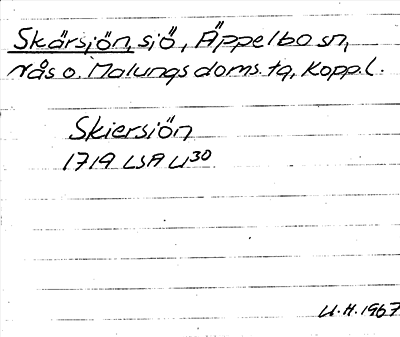 Skärsjön, sjö, Äppelbo sn,
Nås o. Malungs doms. tg, Kopp. l.
Skiersiön
1719 LSA U30
U.H. 1967